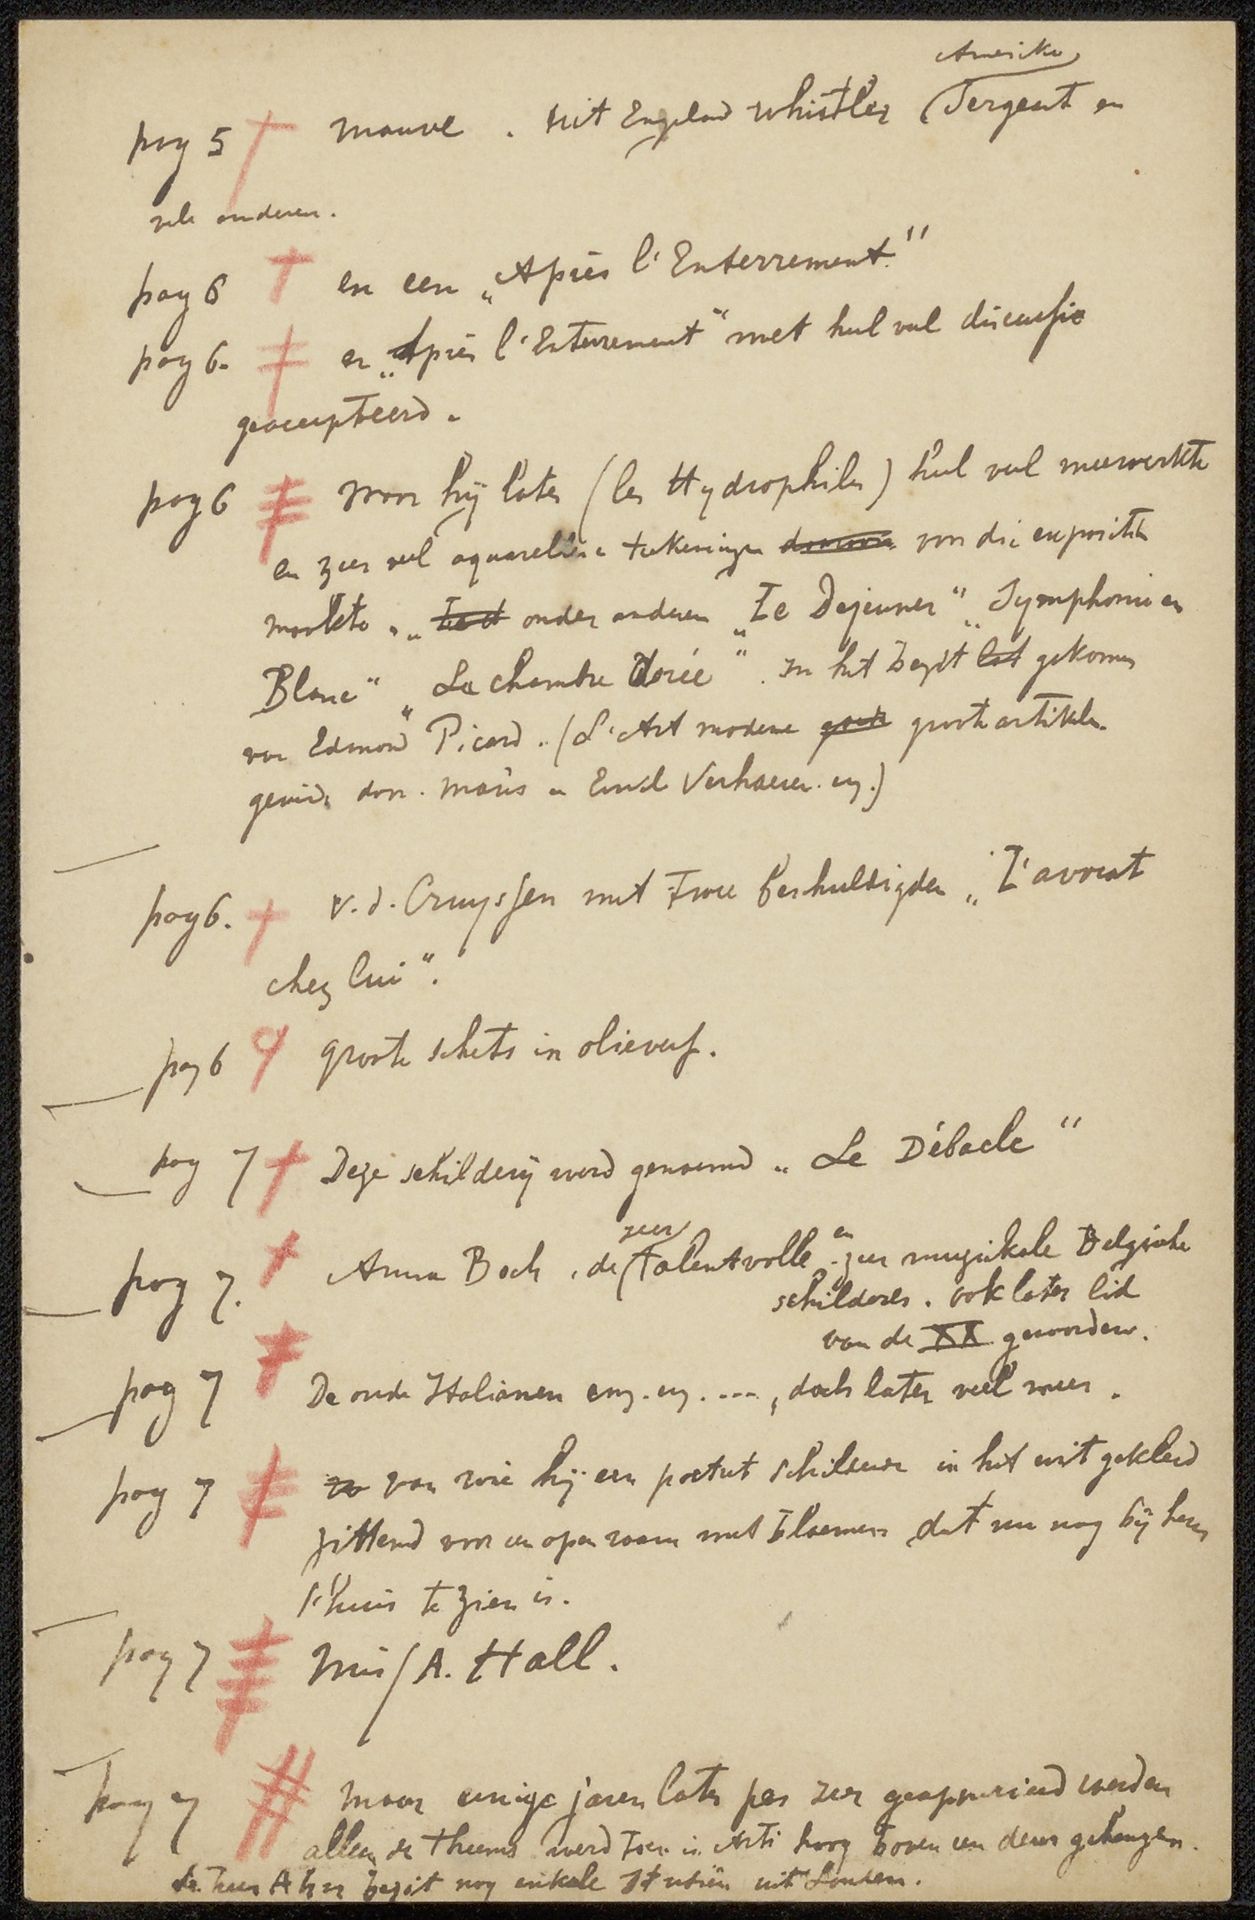 Amerika
pag 5 Mauve. Uit Engeland Whistler (Sergeant en
vele anderen.
pag 6 en een „Après l'Enterrement."
pag 6. en „Après l'Enterrement" met heel veel discussie
geaccepteerd.
pag 6 waar hij later (les Hydrophiles) heel veel meewerkte
en zeer veel aquarellen en teekeningen van die expositie
maakte. onder anderen „Le Dejeuner" „Symphonie en
Blanc" „La chambre dorée". In het bezit gekomen
van Edmond Picard. (L'Art moderne groote artikelen
door Maus en Verhaeren enz.)
pag 6. v.d. Cruyssen met twee beschuldigden „L'avocat
chez lui".
pag 6 groote schets in olieverf.
pag 7 Deze schilderij werd genoemd „Le Débacle"
zeer en
pag 7. Anna Boch, de (talentvolle zeer muzikale Belgische
schilderes. ook later lid
van de XX geworden.
pag 7 De oude Italianen enz. enz. ...., doch later veel meer.
pag 7 van wie hij een portret schilderde in het wit gekleed
zittend voor een open raam met bloemen dat nu nog bij hem
t'huis te zien is.
pag 7 Miss A. Hall.
pag 7 Maar eenige jaren later zeer geapprecieerd werden
alleen de Theems werd toen in Arti hoog boven een deur gehangen.
de heer bezit nog enkele Studiën uit Londen.